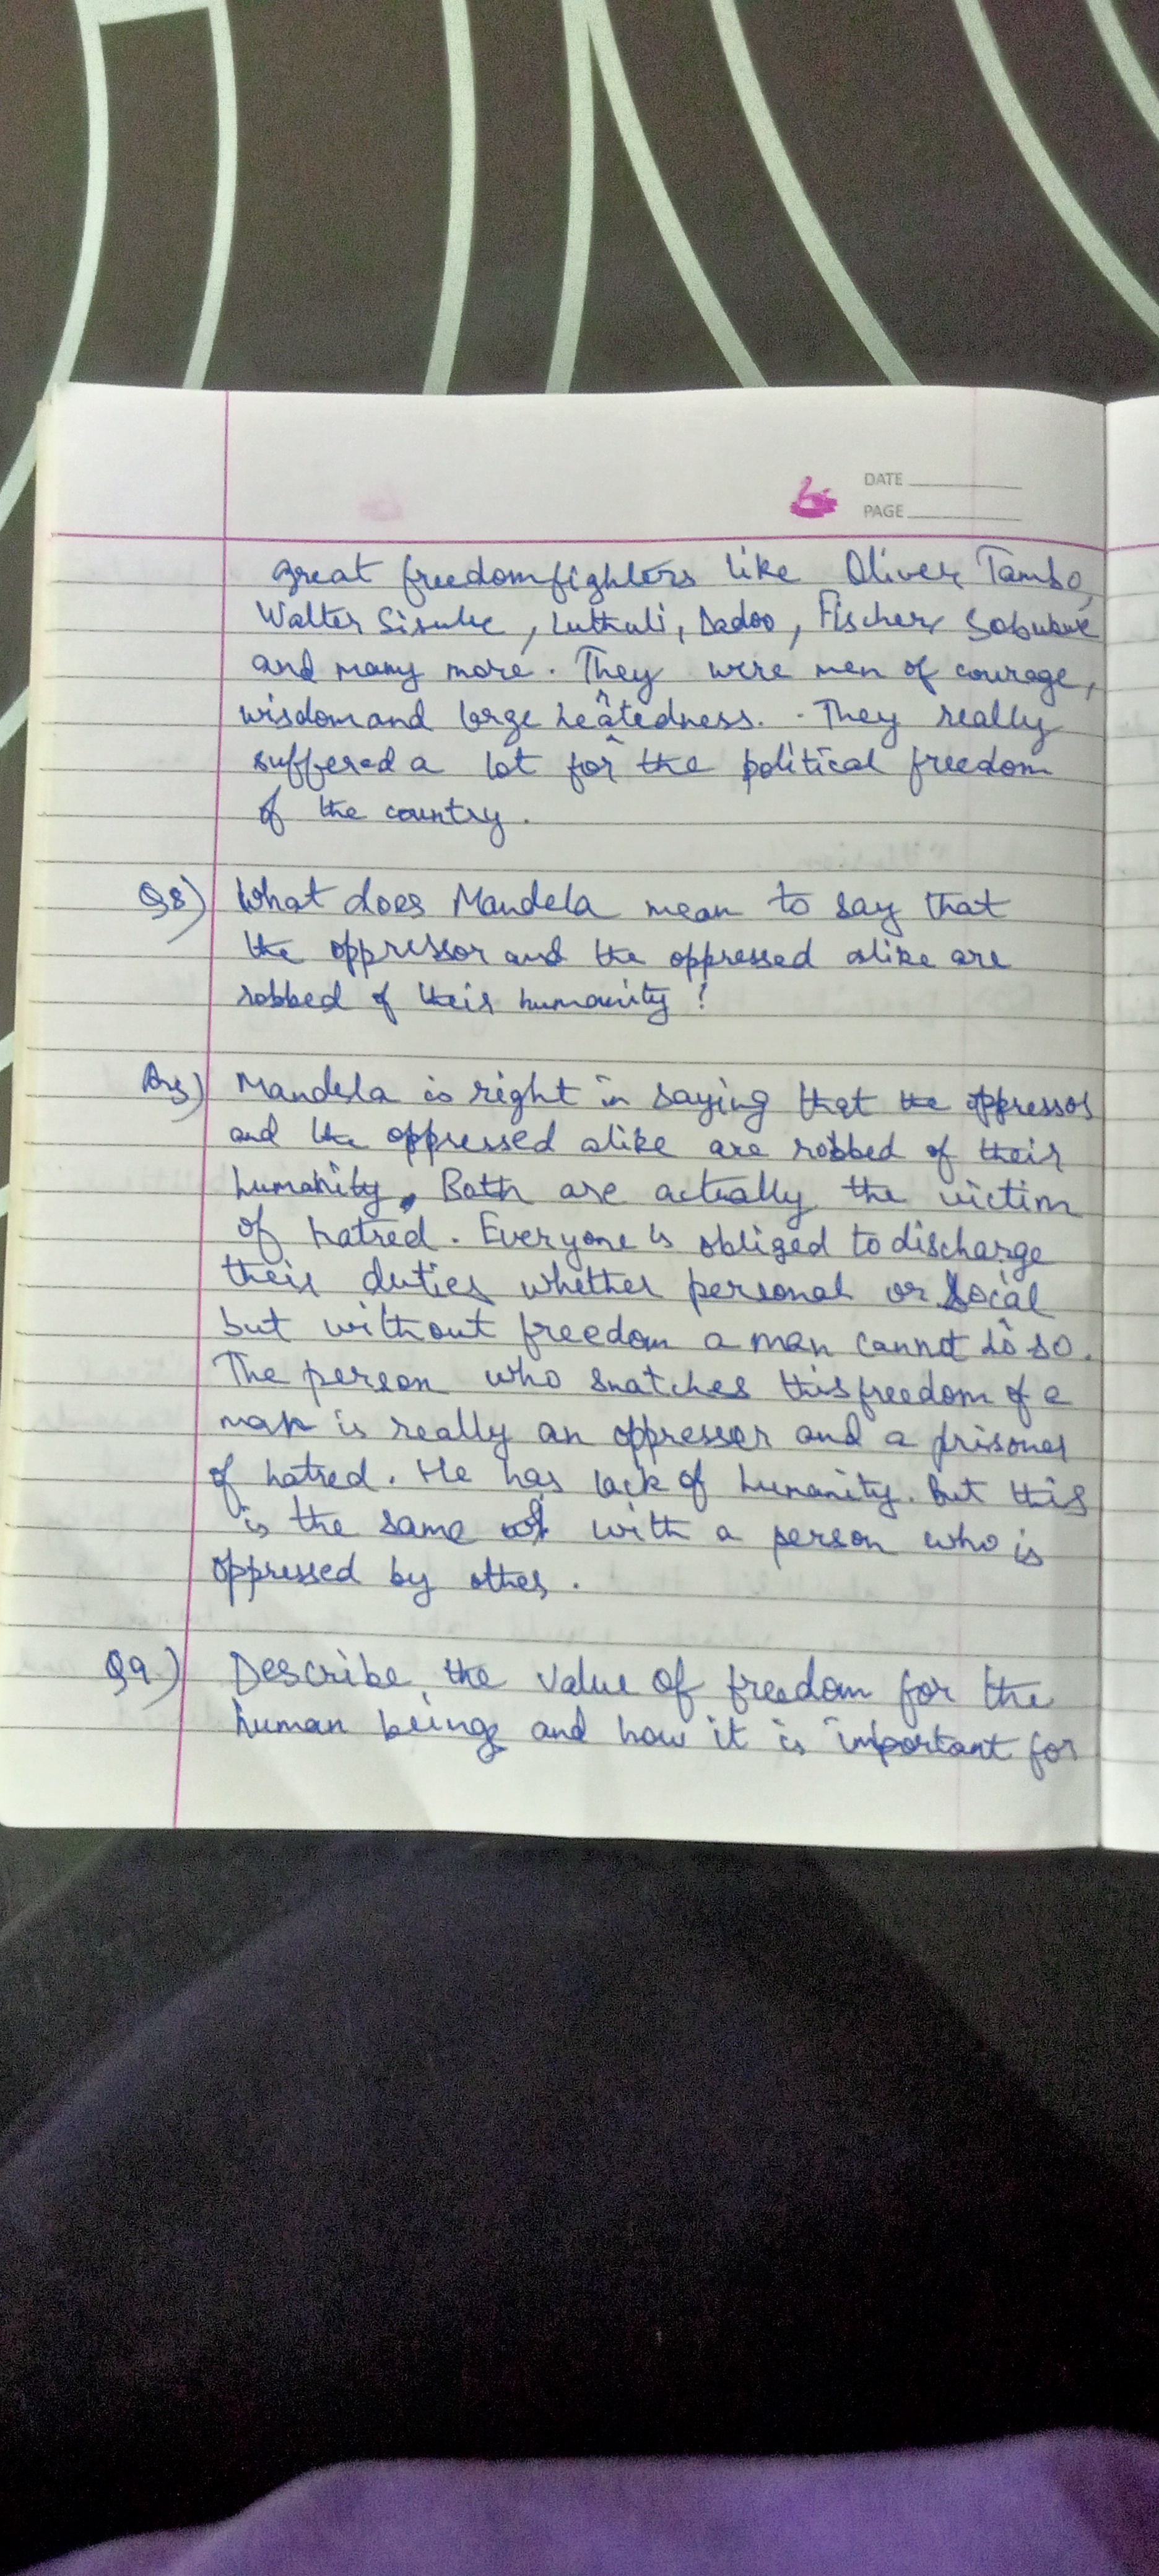 DATE
PAGE
great freedomfighters like Oliver Tambo,
Walter Sisulu, Luthuli, Dadoo, Fischer, Sobukwe
and many more. They were men of courage,
wisdom and large heartedness. They really
suffered a lot for the political freedom
of the country.
Q8) What does Mandela mean to say that
the oppressor and the oppressed alike are
robbed of their humanity?
Ans) Mandela is right in saying that the oppressor
and the oppressed alike are robbed of their
humanity. Both are actually the victim
of hatred. Everyone is obliged to discharge
their duties whether personal or social
but without freedom a man cannot do so.
The person who snatches this freedom of a
man is really an oppresser and a prisoner
of hatred. He has lack of humanity. But this
is the same with a person who is
oppressed by other.
Q9) Describe the value of freedom for the
human being and how it is important for